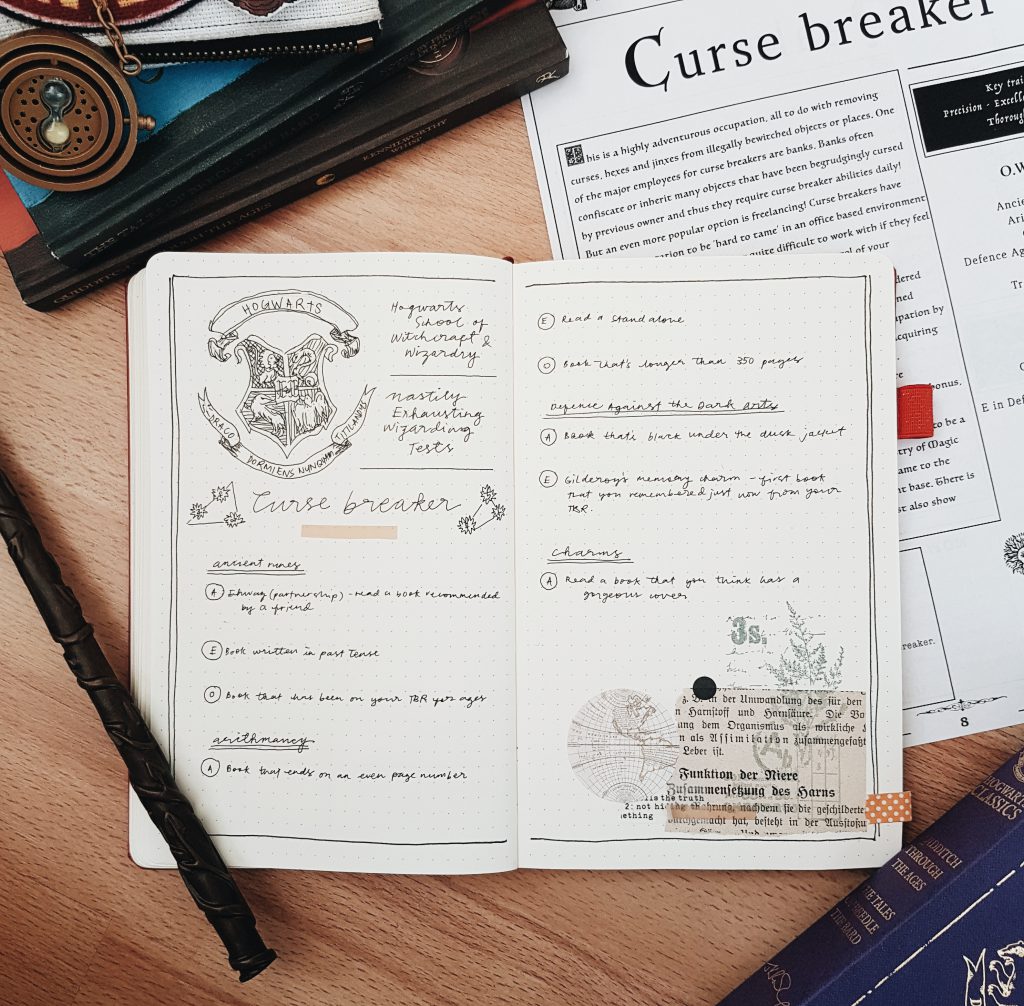 KENNILWORTHY
WHISP
THROUGH THE AGES
Curse breaker
Key trai
Precision - Excelle
Thorough
This is a highly adventurous occupation, all to do with removing
curses, hexes and jinxes from illegally bewitched objects or places. One
of the major employees for curse breakers are banks. Banks often
confiscate or inherit many objects that have been begrudgingly cursed
by previous owner and thus they require curse breaker abilities daily!
But an even more popular option is freelancing! Curse breakers have
to be 'hard to tame' in an office based environment
quite difficult to work with if they feel
of your
O.W
Ancie
Ari
Defence Ag
Tr
dered
ned
pation by
cquiring
bonus.
E in Def
to be a
try of Magic
ame to the
t base. There is
st also show
reaker.
8
HOGWARTS
DRACO
DORMIENS NUNQUAM
TITILANDUS
Hogwarts
School of
Witchcraft &
Wizardry
Nastily
Exhausting
Wizarding
Tests
Curse breaker
ancient runes
A Ehwaz (partnership) - read a book recommended
by a friend
E Book written in past tense
O Book that has been on your TBR for ages
arithmancy
A Book that ends on an even page number
E Read a standalone
O Book that's longer than 350 pages
Defence Against the Dark Arts
A Book that's black under the dusk jacket
E Gilderoy's memory charm - first book
that you remembered just now from your
TBR.
Charms
A Read a book that you think has a
gorgeous cover
3s.
in der Umwandlung des für den
n Harnstoff und Harnsäure. Die
ung dem Organismus als wirkliche
n als Assimilation zusammengefaßt
Leber ist.
Funktion der Niere
Zusammensetzung des Harns
is the truth
2: not hiding
ething
nachdem sie die geschilderte
durchgemacht hat, besteht in der
HOGWARTS
CLASSICS
QUIDDITCH
THROUGH
THE AGES
THE TALES
OF BEEDLE
THE BARD